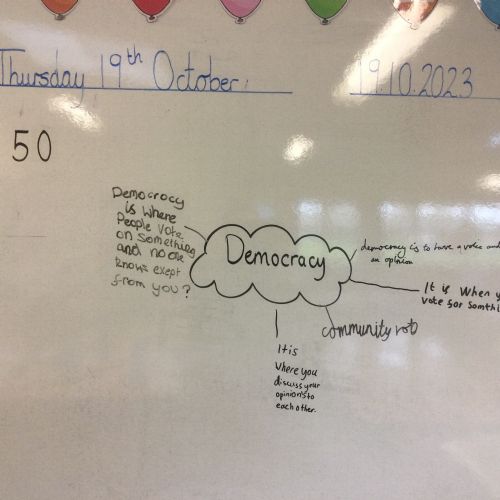 Thursday 19th October.
19.10.2023
50
Democracy
is where
People Vote
on something
and no one
knows exept
from you?
Democracy
democracy is to have a voice and
an opinion
It is When y
vote for Somthi
community
It is
Where you
discuss your
opinions to
each other.